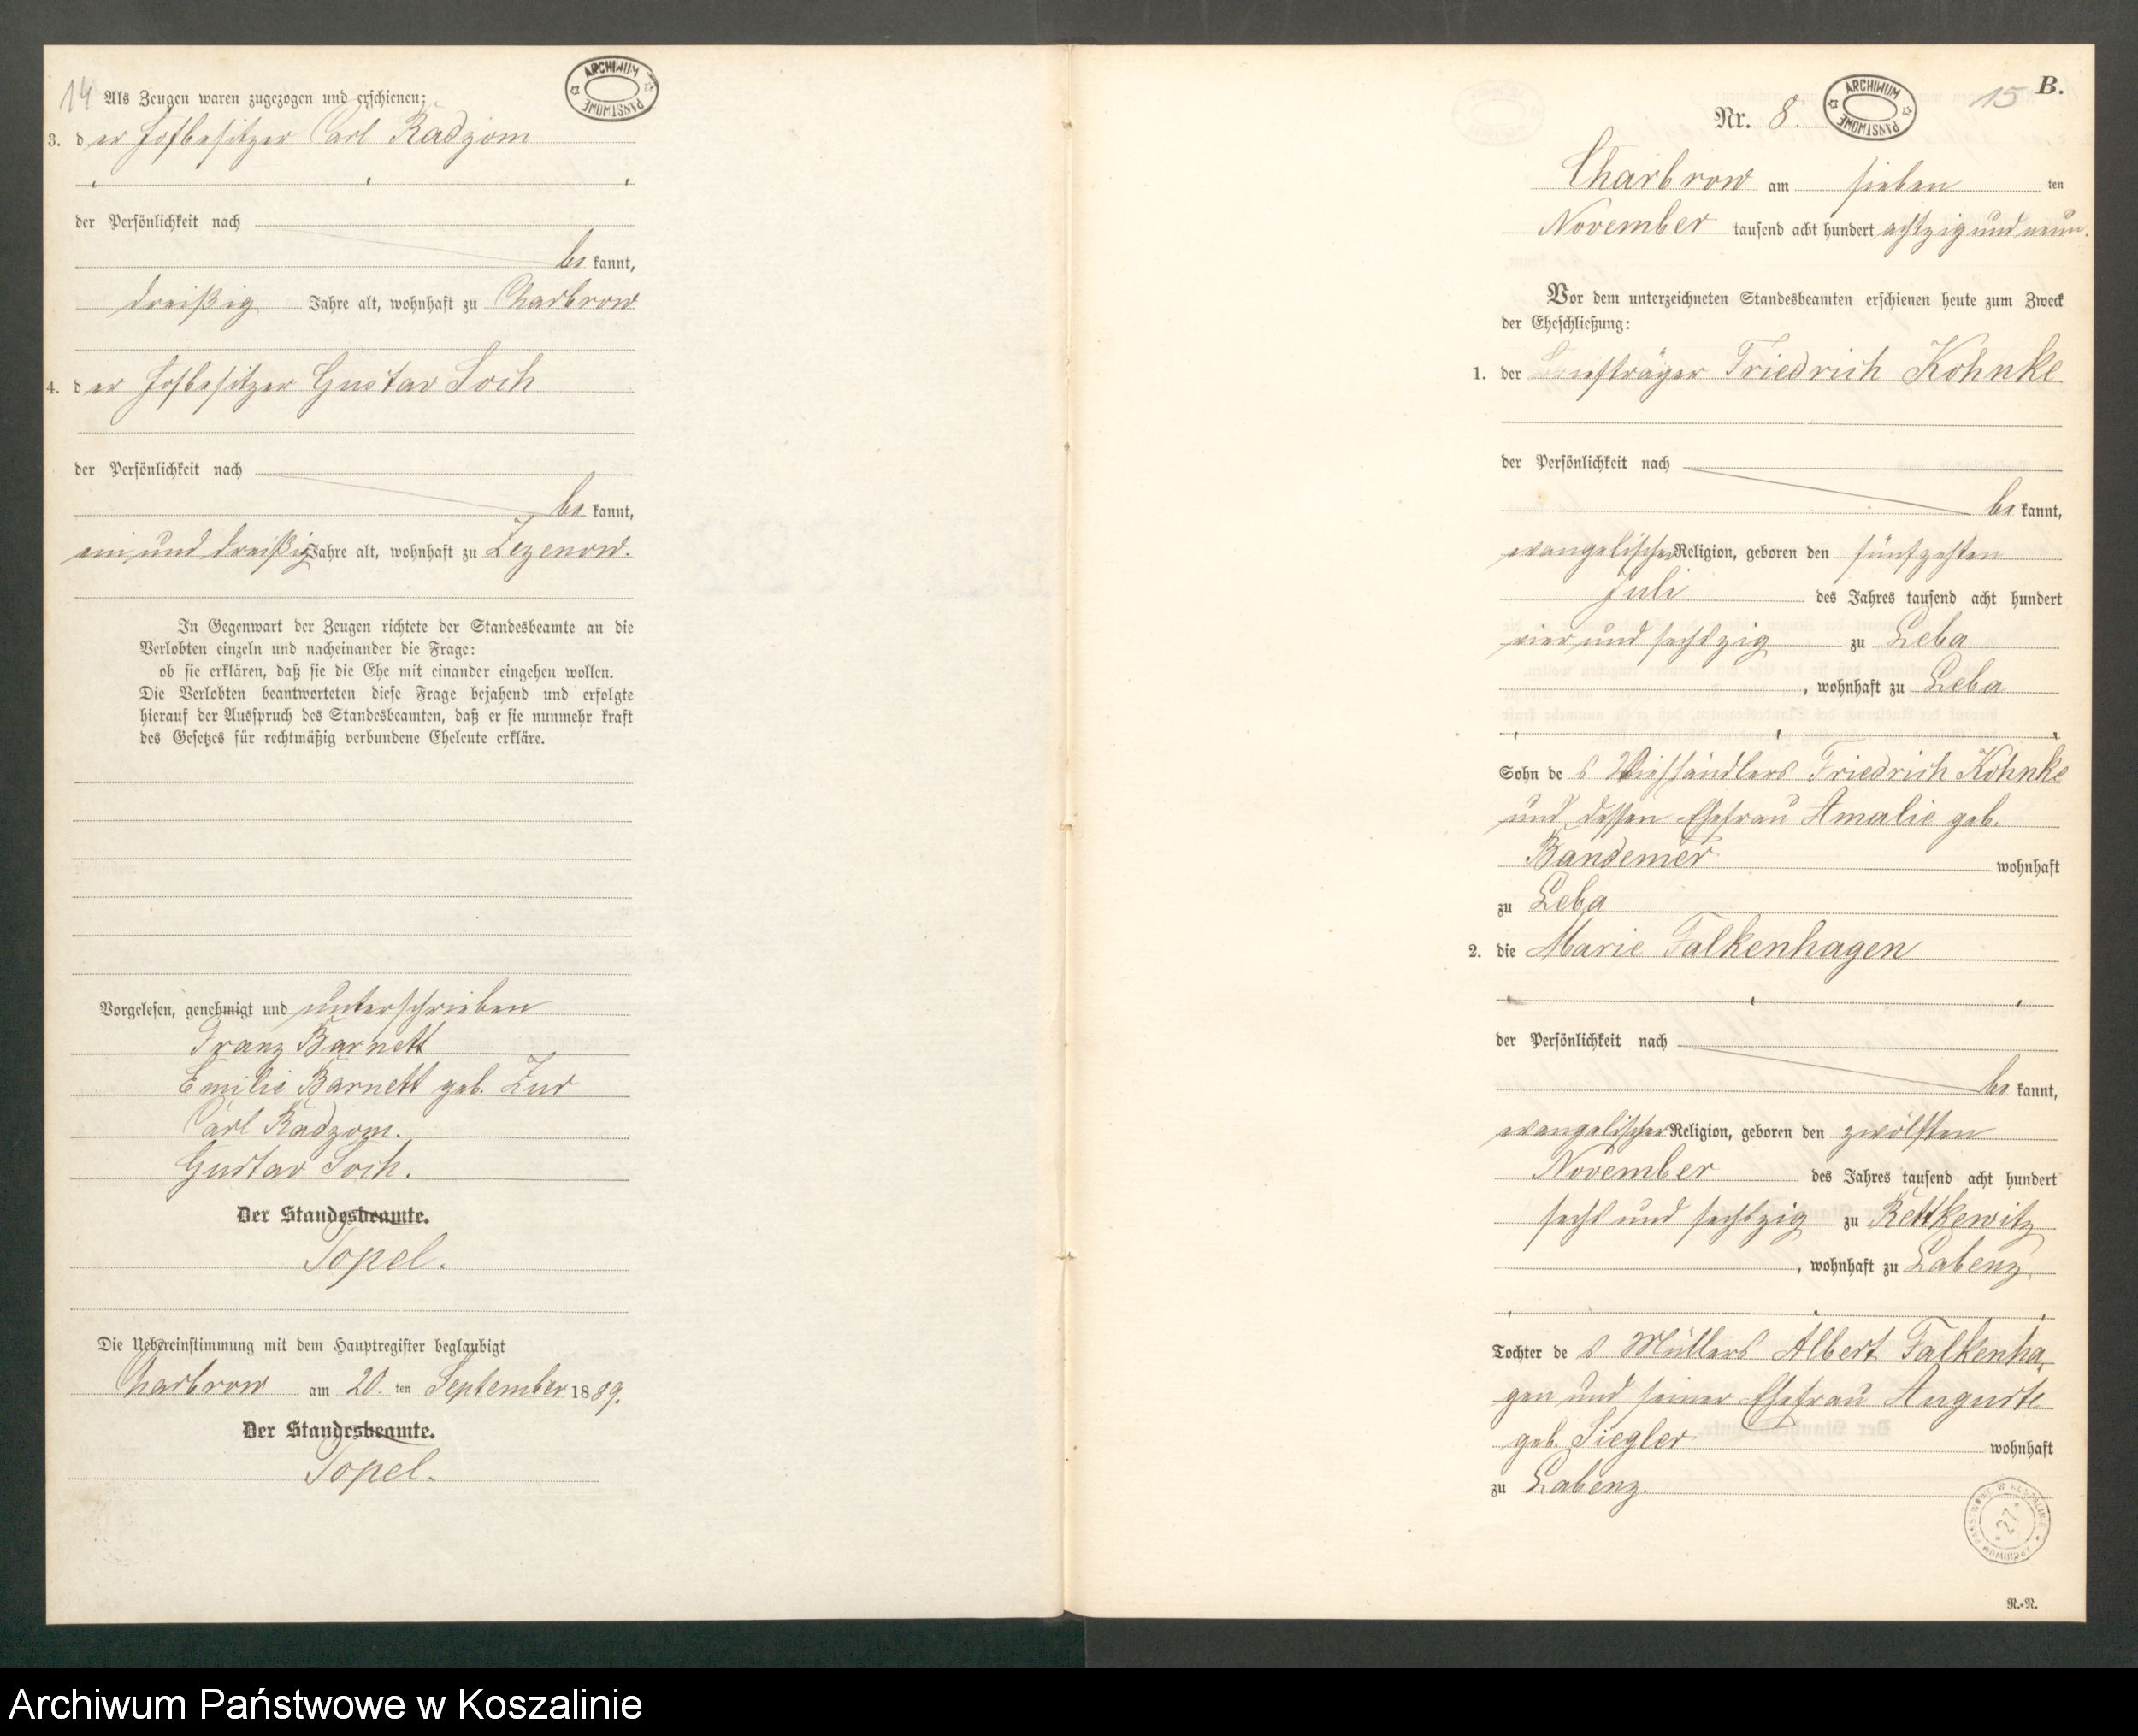 14 Als Zeugen waren zugezogen und erschienen:
3. der Hofbesitzer Carl Radzom
der Persönlichkeit nach
be kannt,
dreißig Jahre alt, wohnhaft zu Charbrow
4. der Hofbesitzer Gustav Soch
der Persönlichkeit nach
be kannt,
ein und dreißig Jahre alt, wohnhaft zu Zezenow.
In Gegenwart der Zeugen richtete der Standesbeamte an die
Verlobten einzeln und nacheinander die Frage:
ob sie erklären, daß sie die Ehe mit einander eingehen wollen.
Die Verlobten beantworteten diese Frage bejahend und erfolgte
hierauf der Ausspruch des Standesbeamten, daß er sie nunmehr kraft
des Gesetzes für rechtmäßig verbundene Eheleute erkläre.
Vorgelesen, genehmigt und unterschrieben
Franz Barnett
Emilie Barnett geb. Zur
Carl Radzom.
Gustav Soch.
Der Standesbeamte.
Topel.
Die Uebereinstimmung mit dem Hauptregister beglaubigt
Charbrow am 20. ten September 1889.
Der Standesbeamte.
Topel.
ARCHIWUM PAŃSTWOWE
15 B.
Nr. 8.
ARCHIWUM PAŃSTWOWE
Charbrow am sieben ten
November tausend acht hundert achtzig und neun.
Vor dem unterzeichneten Standesbeamten erschienen heute zum Zweck
der Eheschließung:
1. der Briefträger Friedrich Kohnke
der Persönlichkeit nach
be kannt,
evangelischer Religion, geboren den fünfzehten
Juli des Jahres tausend acht hundert
vier und sechszig zu Leba
, wohnhaft zu Leba
Sohn de s Viehhändlers Friedrich Kohnke
und dessen Ehefrau Amalie geb.
Bandemer wohnhaft
zu Leba
2. die Marie Falkenhagen
der Persönlichkeit nach
be kannt,
evangelischer Religion, geboren den zwölften
November des Jahres tausend acht hundert
sechs und sechszig zu Rettkewitz
, wohnhaft zu Labenz
Tochter de s Müllers Albert Falkenha-
gen und seiner Ehefrau Auguste
geb. Siegler wohnhaft
zu Labenz.
ARCHIWUM PAŃSTWOWE W KOSZALINIE
27
R.-N.
Archiwum Państwowe w Koszalinie